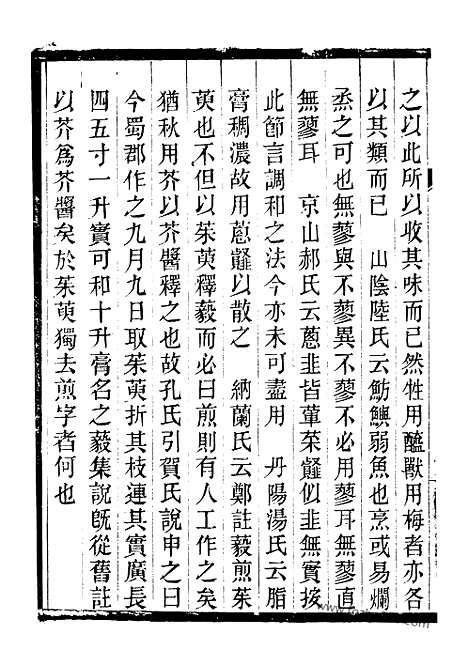 之以此所以收其味而已然牲用醯獸用梅者亦各
以其類而已　山陰陸氏云魴鱮弱魚也烹或易爛
烝之可也無蓼與不蓼異不蓼不必用蓼耳無蓼直
無蓼耳　京山郝氏云蔥韭皆葷茱䪥似韭無實按
此節言調和之法今亦未可盡用　丹陽湯氏云脂
膏稠濃故用蔥䪥以散之　納蘭氏云鄭註藙煎茱
萸也不但以茱萸釋藙而必曰煎則有人工作之矣
猶秋用芥以芥醬釋之也故孔氏引賀氏說申之曰
今蜀郡作之九月九日取茱萸折其枝連其實廣長
四五寸一升實可和十升膏名之藙集說旣從舊註
以芥爲芥醬矣於茱萸獨去煎字者何也